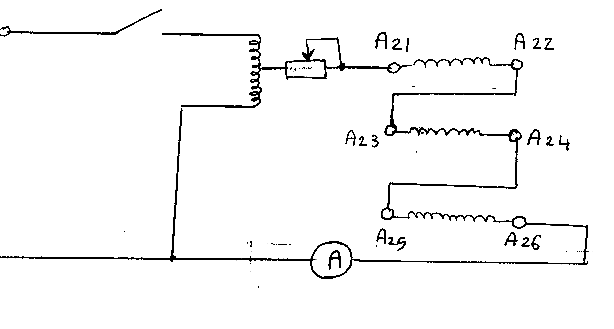 A21
A22
A23
A24
A25
A26
A